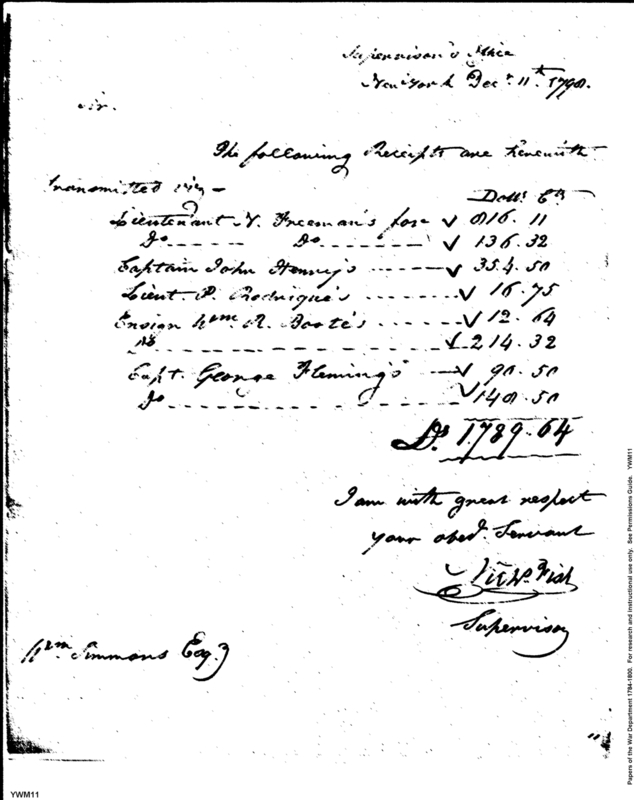 Supervisor's Office
New York Decr. 11th. 1798.
Sir.
The following Receipts are herewith
transmitted viz-
Dolls. Cts
Lieutenant N. Freeman's for √ 816.11
Do ------ Do ------ √ 136.32
Captain John Henry's ---- √ 354.50
Lieut. P. Rodrique's ------ √ 16.75
Ensign Wm. R. Boote's ----- √ 12.64
Do ------------ √ 214.32
Capt. George Fleming's --- √ 90.50
Do ------------ √ 148.50
Ds. 1789.64
I am with great respect
your obedt. Servant
Nichs. Fish
Supervisor
Wm Simmons Esq.
YWM11
Papers of the War Department 1784-1800. For research and instructional use only. See Permissions Guide. YWM11